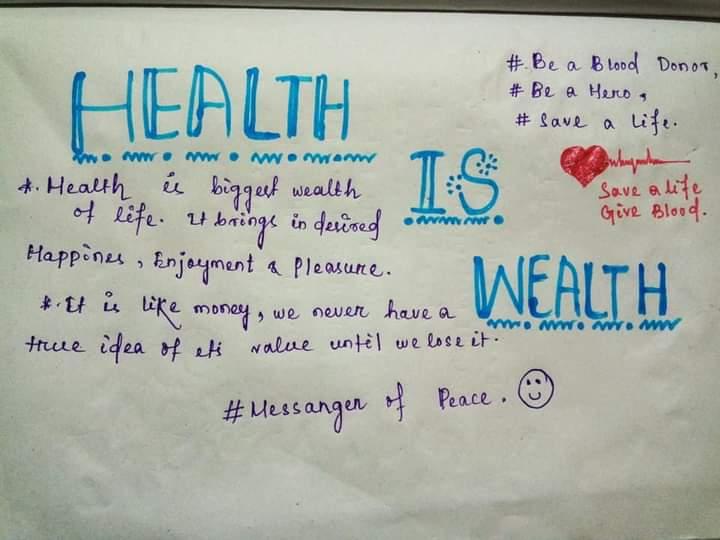 HEALTH
IS
WEALTH
# Be a Blood Donor,
# Be a Hero,
# Save a Life.
Save a life
Give Blood.
*. Health is biggest wealth
of life. It brings in desired
Happines, Enjoyment & Pleasure.
*. It is like money, we never have a
true idea of its value until we lose it.
# Messanger of Peace.